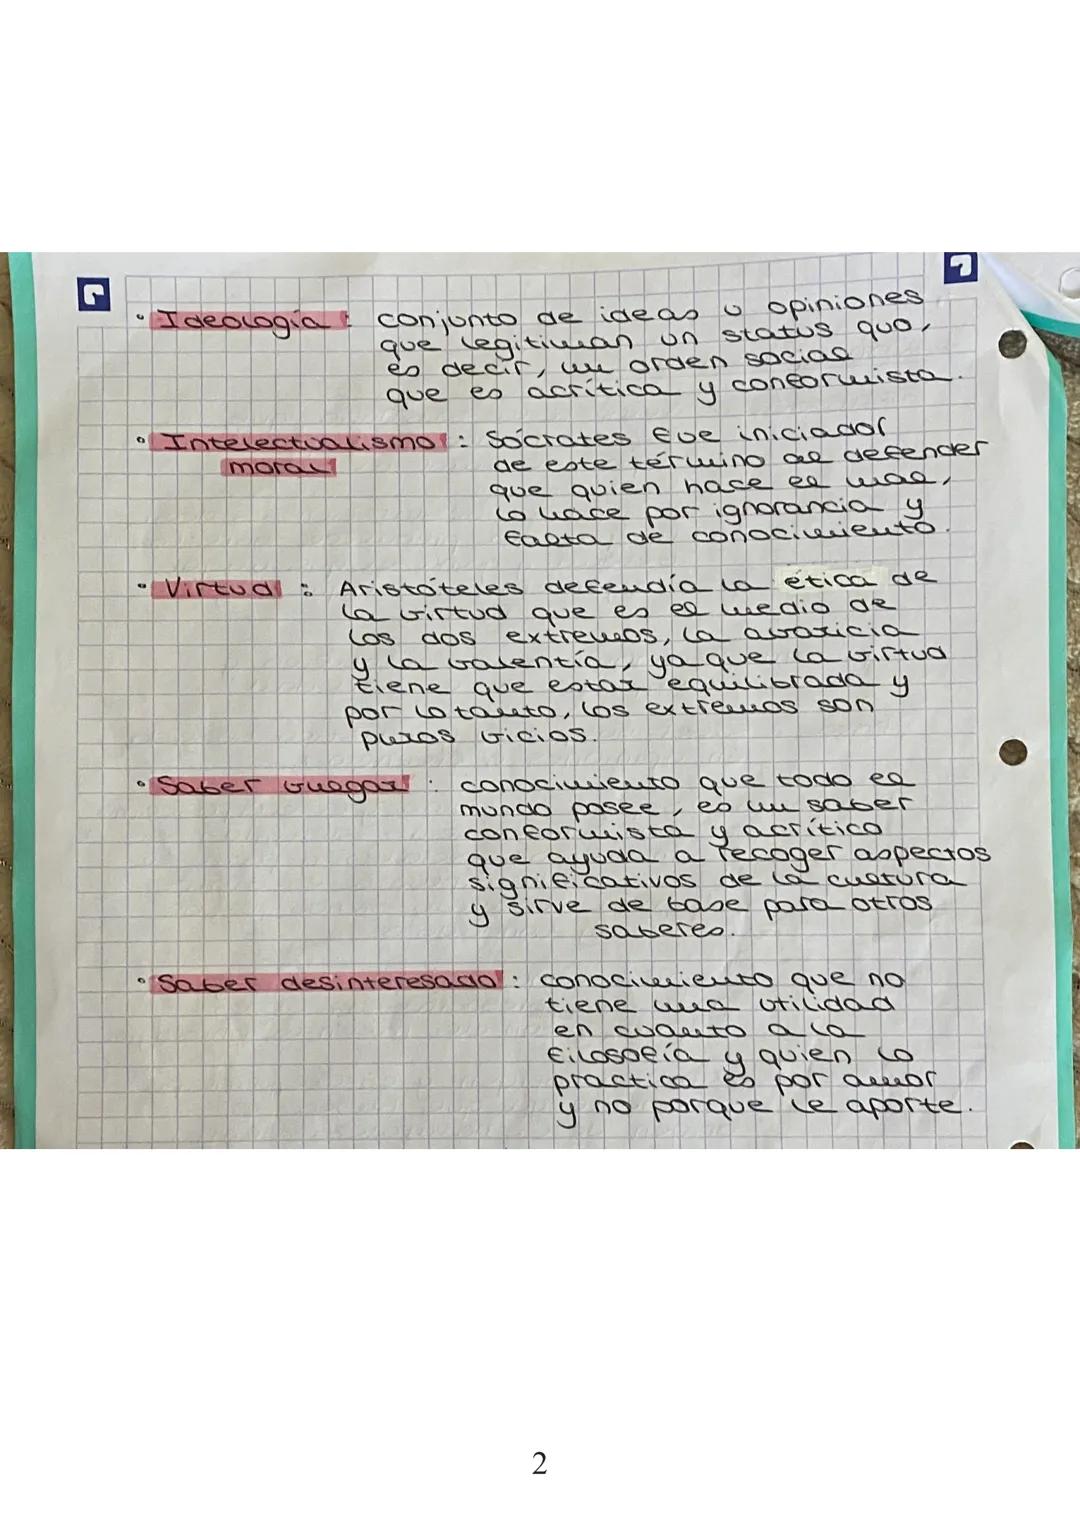 • Ideología : conjunto de ideas u opiniones
que legitiman un status quo,
es decir, un orden social
que es acrítica y conformista.
• Intelectualismo : Sócrates fue iniciador
moral de este término al defender
que quien hace el mal,
lo hace por ignorancia y
falta de conocimiento.
• Virtud : Aristóteles defendía la ética de
la virtud que es el medio de
los dos extremos, la avaricia
y la valentía, ya que la virtud
tiene que estar equilibrada y
por lo tanto, los extremos son
puros vicios.
• Saber vulgar : conocimiento que todo el
mundo posee, es un saber
conformista y acrítico
que ayuda a recoger aspectos
significativos de la cultura
y sirve de base para otros
saberes.
• Saber desinteresado : conocimiento que no
tiene una utilidad
en cuanto a la
filosofía y quien lo
practica es por amor
y no porque le aporte.
2